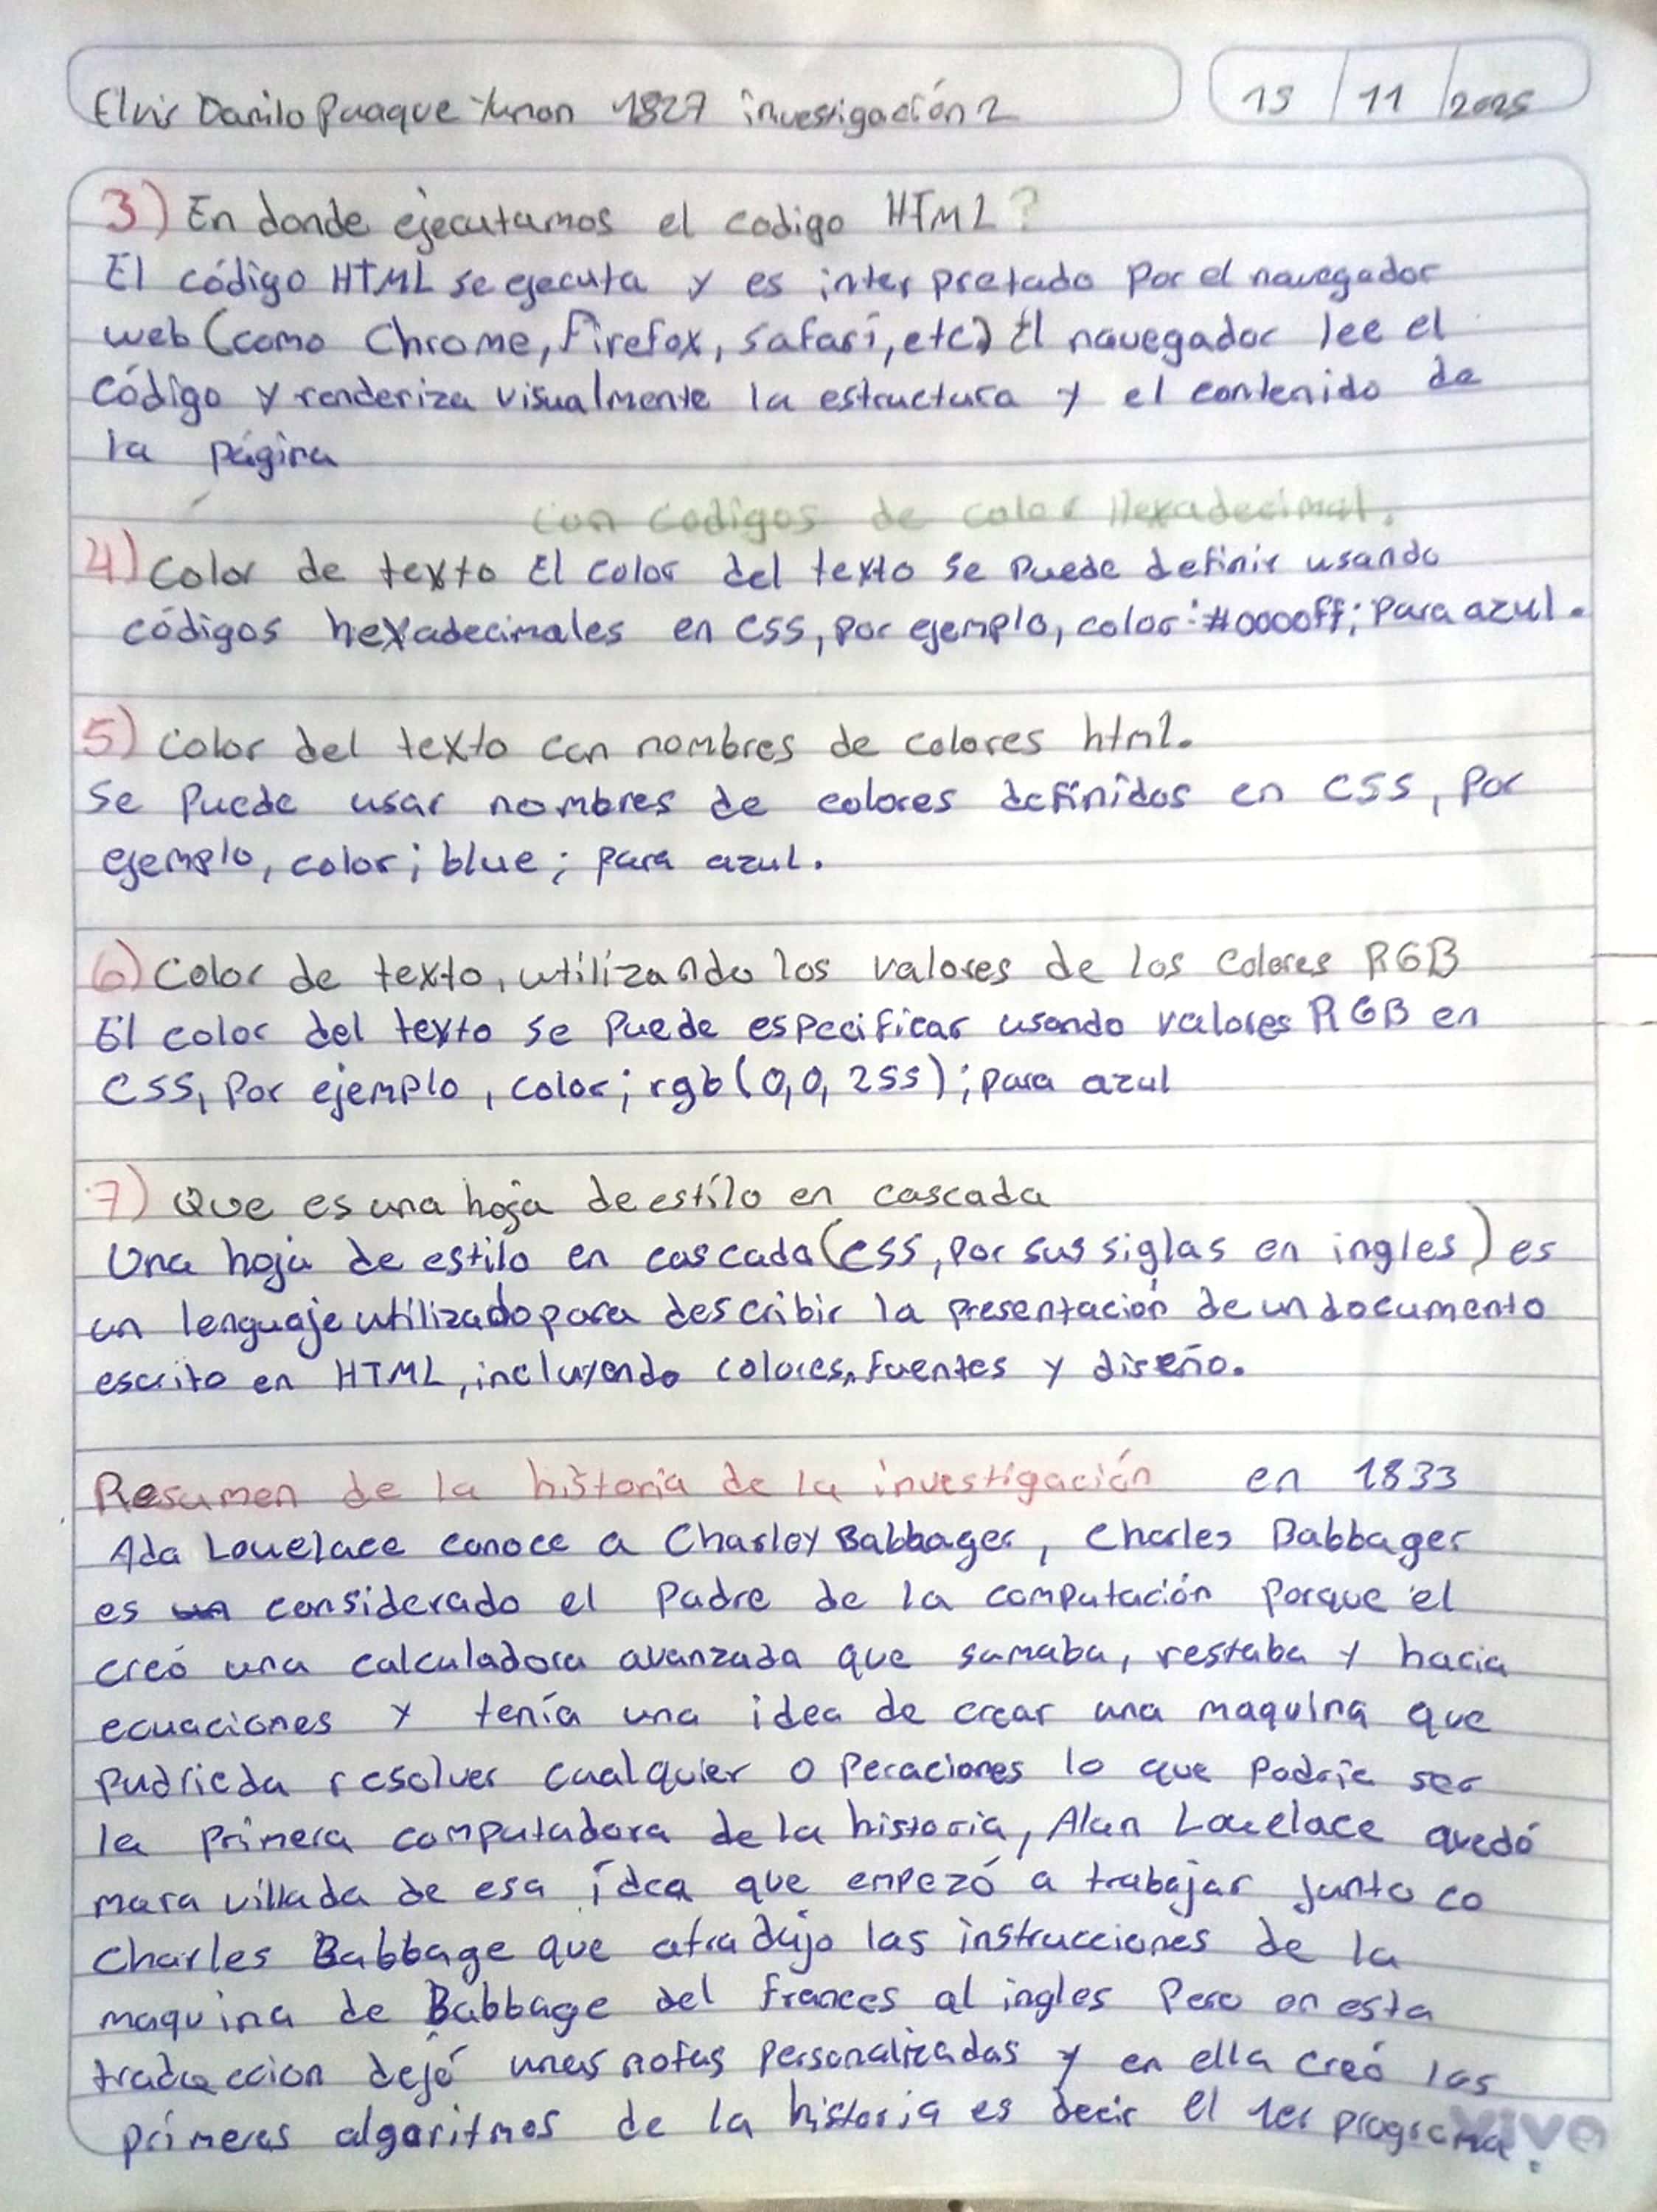 Elvis Danilo Puaque Yunon 1827 investigación 2
19 / 11 / 2025
3) En donde ejecutamos el codigo HTML?
El código HTML se ejecuta y es interpretado Por el navegador
web (como Chrome, Firefox, Safari, etc) El navegador lee el
Código y renderiza visualmente la estructura y el contenido de
la página
con codigos de color Hexadecimal.
4) Color de texto El color del texto se Puede definir usando
códigos hexadecimales en CSS, por ejemplo, color: #0000ff; Para azul.
5) Color del texto con nombres de colores html.
Se Puede usar nombres de colores definidos en CSS, Por
ejemplo, color; blue; para azul.
6) Color de texto, utilizando los valores de los Colores RGB
El color del texto se Puede especificar usando valores RGB en
CSS, Por ejemplo, color; rgb (0,0, 255); para azul
7) Que es una hoja de estilo en cascada
Una hoja de estilo en cascada (CSS, por sus siglas en ingles) es
un lenguaje utilizado para describir la presentación de un documento
escrito en HTML, incluyendo colores, fuentes y diseño.
Resumen de la historia de la investigación en 1833
Ada Lovelace conoce a Charley Babbager, Charles Babbager
es considerado el Padre de la computación Porque el
creó una calculadora avanzada que sumaba, restaba y hacia
ecuaciones y tenía una idea de crear una maquina que
pudrieda resolver cualquier operaciones lo que Podria ser
la Primera computadora de la historia, Alan Lovelace quedó
mara villada de esa idea que empezó a trabajar junto co
Charles Babbage que atradujo las instrucciones de la
maquina de Babbage del Frances al ingles Pero en esta
traduccion dejó unas notas Personalizadas y en ella creó las
primeras algoritmos de la historia es decir el 1er programa.
vivo